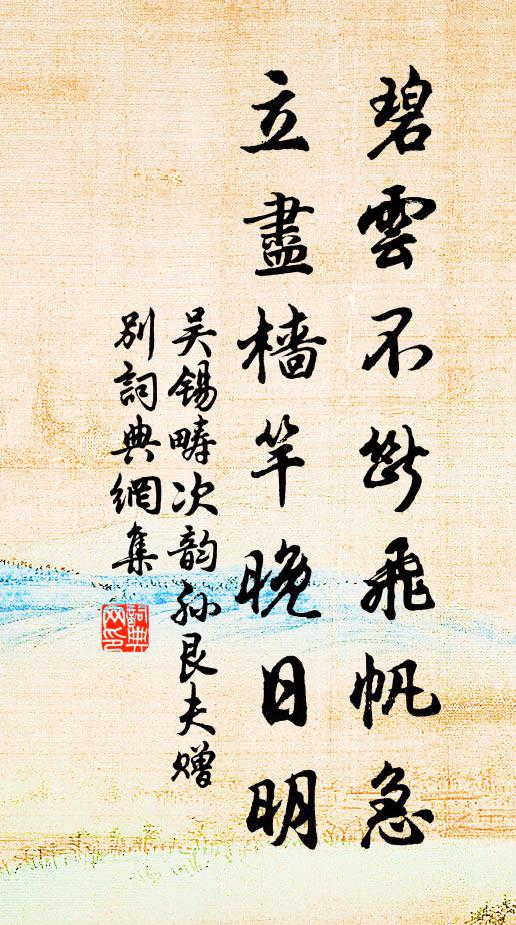 碧雲不斷飛帆急
立盡檣竿晚日明
吴锡疇次韵孙艮夫赠
别詞典網集
詞典網印